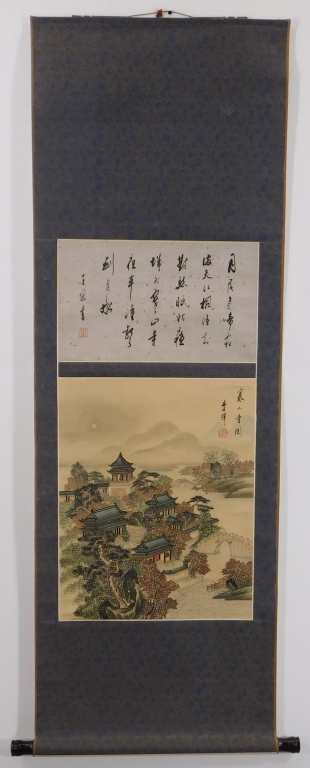 月落烏啼霜
滿天江楓漁火
對愁眠姑蘇
城外寒山寺
夜半鐘聲
到客船
寒山寺圖